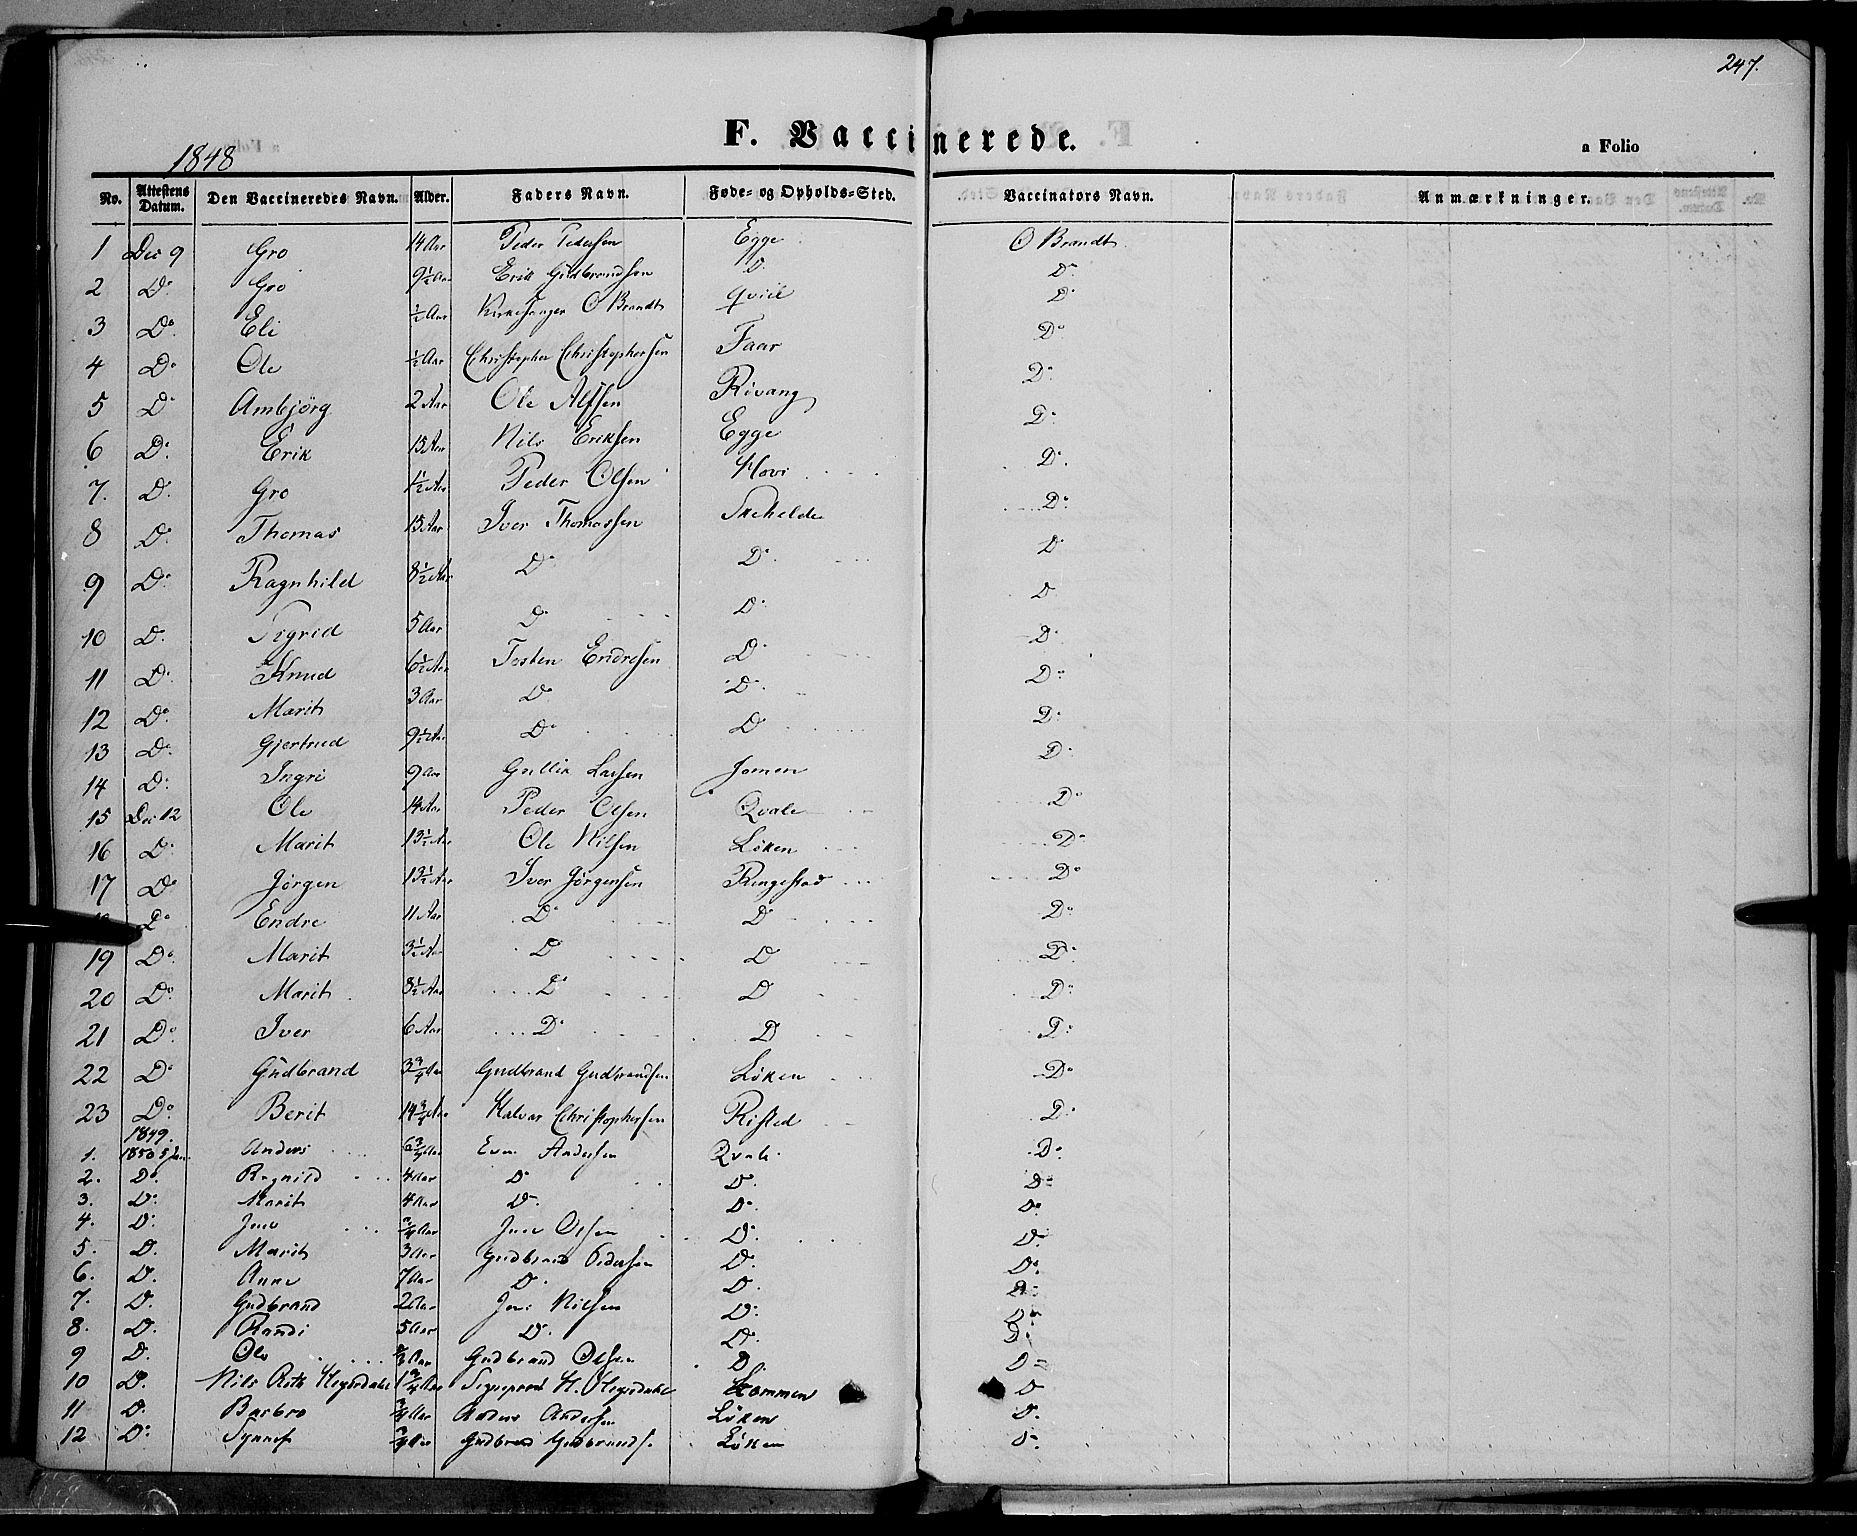 247.
F. Vaccinerede.
a Folio
1848
No. Attestens Datum. Den Vaccineredes Navn. Alder. Faders Navn. Føde- og Opholds-Sted. Vaccinators Navn. Anmærkninger.
1 Dec 9 Gro 14 Aar Peder Pedersen Egge O Brandt
2 Do Gro 9½ Aar Erik Gudbrandsen D. Do
3 Do Eli ½ Aar Kirkesanger O Brandt Qviil Do
4 Do Ole ½ Aar Christopher Christophersen Faar Do
5 Do Ambjörg 2 Aar Ole Alfsen Rivang Do
6 Do Erik 15 Aar Nils Eriksen Egge Do
7. Do Gro 1½ Aar Peder Olsen Hovi Do
8 Do Thomas 15 Aar Iver Thomassen Do
9 Do Ragnhild 8½ Aar Do Do Do
10 Do Sigrid 5 Aar Do Do Do
11 Do Knud 6½ Aar Tosten Endresen Do Do
12 Do Marit 3 Aar Do Do Do
13 Do Gjertrud 9½ Aar Do Do Do
14 Do Ingri 9 Aar Gullik Larsen Jomen Do
15 Dec 12 Ole 14 Aar Peder Olsen Qvale Do
16 Do Marit 13½ Aar Ole Nilsen Löken Do
17 Do Jørgen 13½ Aar Iver Jørgensen Ringestad Do
Do Endre 11 Aar Do Do Do
19 Do Marit 3½ Aar Do Do Do
20 Do Marit 8½ Aar Do Do Do
21 Do Iver 6 Aar Do Do Do
22 Do Gudbrand 3¾ Aar Gudbrand Gudbrandsen Löken Do
23 Do Berit 14¾ Aar Halvor Christophersen Risted Do
1849.
1. 1850 5 Jan Anders 6¾ Aar Even Andersen Qvale Do
2. Do Ragnild 4 Aar D D. Do
3. Do Marit 4 Aar D. D. Do
4. D. Jens ¾ Aar Jens Olsen D. D.
5. D. Marit 3 Aar Gudbrand Pedersen D. Do
6. D. Anne 7 Aar D. D. Do
7. D. Gudbrand 2 Aar Jens Nilsen D. Do
8. D. Randi 5 Aar D. D. D.
9 D. Ole Aar Gudbrand Olsen D. D
10 D. Nils 1¾ Aar Lommen D
11 D. Barbro ¾ Aar Anders Andersen Löken D.
12 D. ¾ Aar Gudbrand Gudbrands. Löken D.